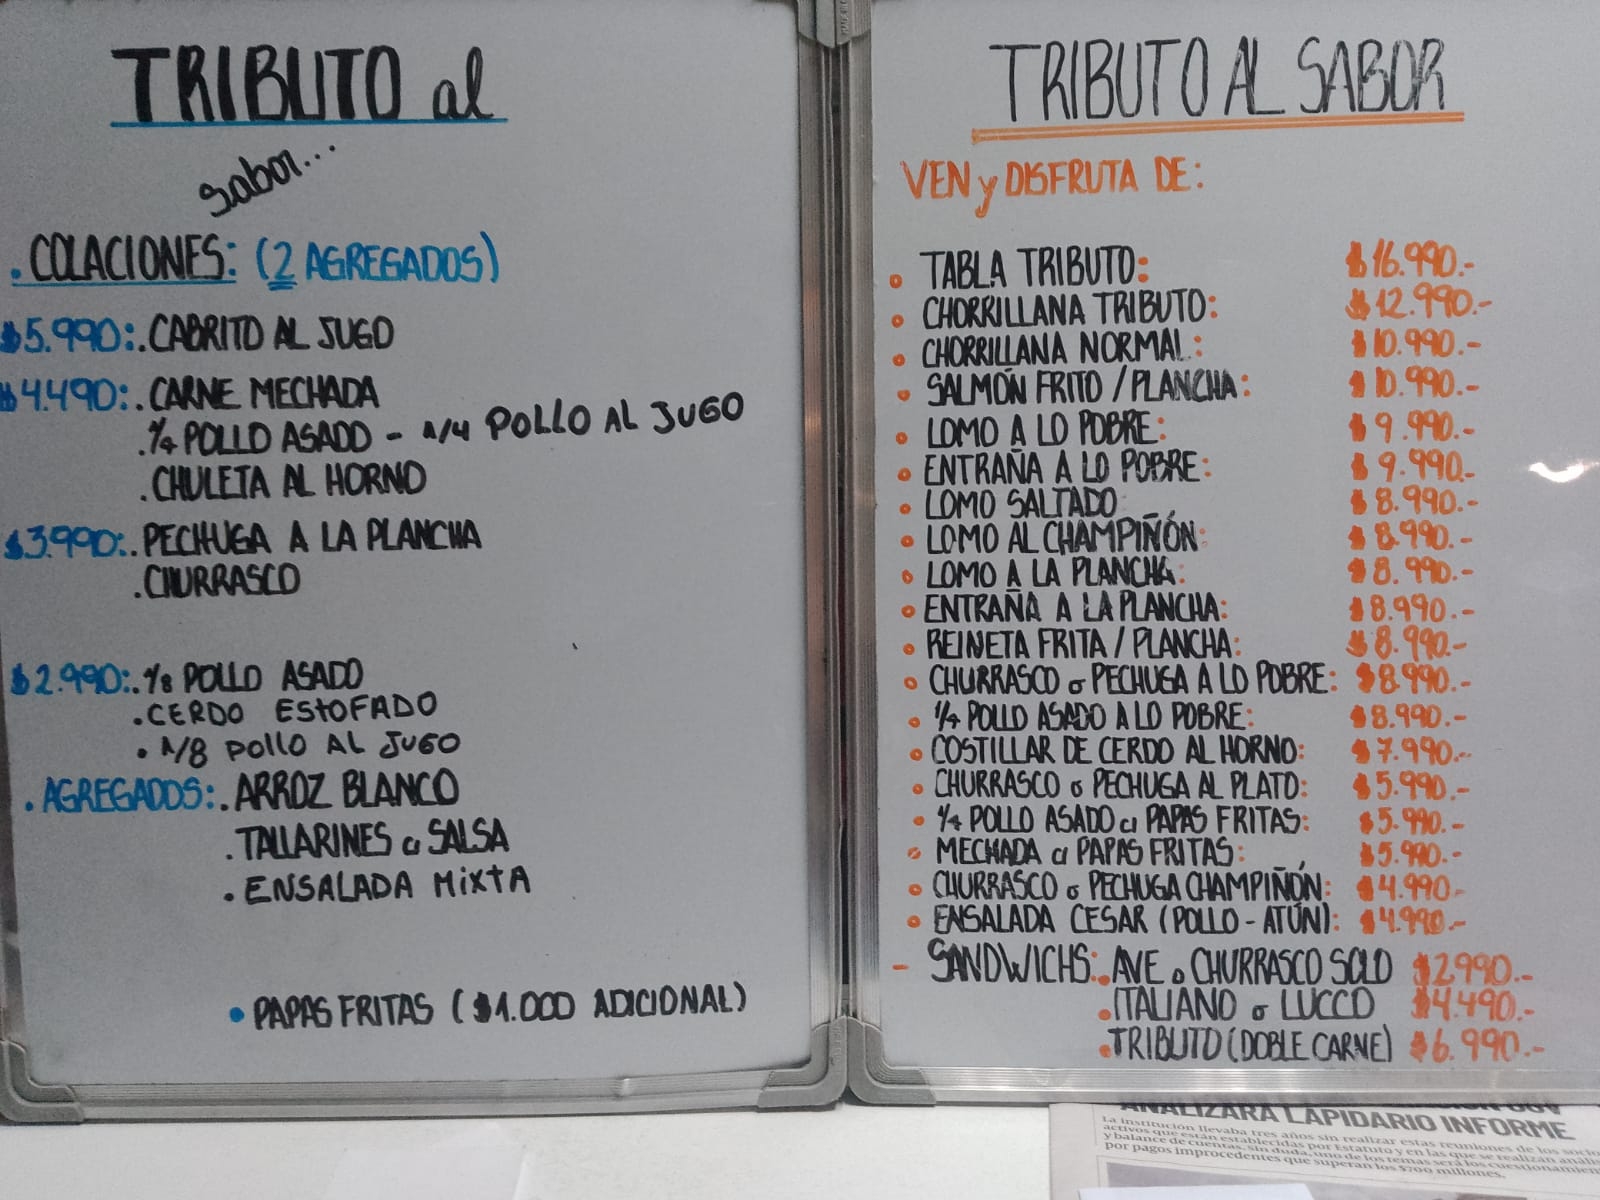 TRIBUTO al
Sabor...
. COLACIONES: (2 AGREGADOS)
$5.990: . CABRITO AL JUGO
$4.490: . CARNE MECHADA
. 1/4 POLLO ASADO - 1/4 POLLO AL JUGO
. CHULETA AL HORNO
$3.990: . PECHUGA A LA PLANCHA
. CHURRASCO
$2.990: . 1/8 POLLO ASADO
. CERDO ESTOFADO
. 1/8 POLLO AL JUGO
. AGREGADOS: . ARROZ BLANCO
. TALLARINES c/ SALSA
. ENSALADA MIXTA
• PAPAS FRITAS ($1.000 ADICIONAL)
TRIBUTO AL SABOR
VEN y DISFRUTA DE:
• TABLA TRIBUTO: $16.990.-
• CHORRILLANA TRIBUTO: $12.990.-
• CHORRILLANA NORMAL: $10.990.-
• SALMÓN FRITO / PLANCHA: $10.990.-
• LOMO A LO POBRE: $9.990.-
• ENTRAÑA A LO POBRE: $9.990.-
• LOMO SALTADO: $8.990.-
• LOMO AL CHAMPIÑÓN: $8.990.-
• LOMO A LA PLANCHA: $8.990.-
• ENTRAÑA A LA PLANCHA: $8.990.-
• REINETA FRITA / PLANCHA: $8.990.-
• CHURRASCO o PECHUGA A LO POBRE: $8.990.-
• 1/4 POLLO ASADO A LO POBRE: $8.990.-
• COSTILLAR DE CERDO AL HORNO: $7.990.-
• CHURRASCO o PECHUGA AL PLATO: $5.990.-
• 1/4 POLLO ASADO c/ PAPAS FRITAS: $5.990.-
• MECHADA c/ PAPAS FRITAS: $5.990.-
• CHURRASCO o PECHUGA CHAMPIÑÓN: $4.990.-
• ENSALADA CESAR (POLLO - ATÚN): $4.990.-
- SANDWICHS: . AVE o CHURRASCO SOLO $2990.-
. ITALIANO o LUCCO $4.490.-
. TRIBUTO (DOBLE CARNE) $6.990.-
ANALIZARÁ LAPIDARIO INFORME
La institución llevaba tres años sin realizar estas reuniones de los socio
activos que están establecidas por Estatuto y en las que se realizan anális
y balance de cuentas. Sin duda, uno de los temas será los cuestionamien
por pagos improcedentes que superan los $700 millones.